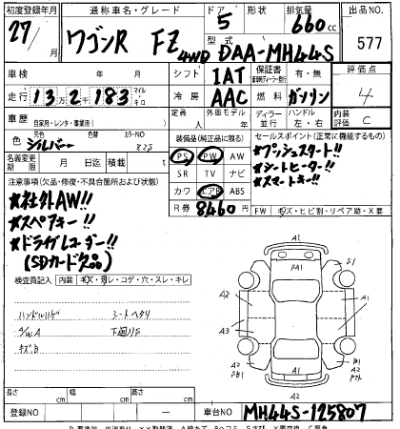 初度登録年月 通称車名・グレード ドア 形状 排気量 出品NO.
27/ 月 ワゴンR FZ 4WD 5 660cc 577
型式 DAA-MH44S
車検 年 月 シフト IAT 保証書 有・無 評価点
走行 13万2千183 マイル キロ 冷房 AAC 燃料 ガソリン 4
車歴 自家用・レンタ・事業用( ) 定員 人 外車モデル 年 ディーラー 並行 ハンドル 左・右 内装評価 C
色 元色 シルバー 色替 カラーNO 装備品(純正品に限る) セールスポイント(正常に機能するもの)
名義変更期限 月 日迄 積載 t PS PW AW ★プッシュスタート!!
SR TV ナビ ★シートヒーター!!
注意事項(欠品・修復・不具合箇所および状態) カワ エアB ABS ★スマートキー!!
★社外AW!! R券 8460円 FW キズ・ヒビ割・リペア跡・X要
★スペアキー!!
★ドラガレコーダー!!
(SDカード欠品)
検査員記入 内装 キズ・汚レ・コゲ・穴・スレ・キレ
ハンドルハゲ シートヘタリ
下廻りS
キズB
A1
A1
S1
A2
A1
A3
A2
B1
A2
A2
長さ cm 幅 cm 高さ cm
登録NO — 車台NO MH44S-125807